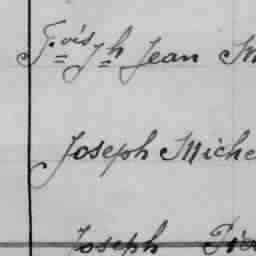 F.ois Jh Jean
Joseph Miche
Joseph